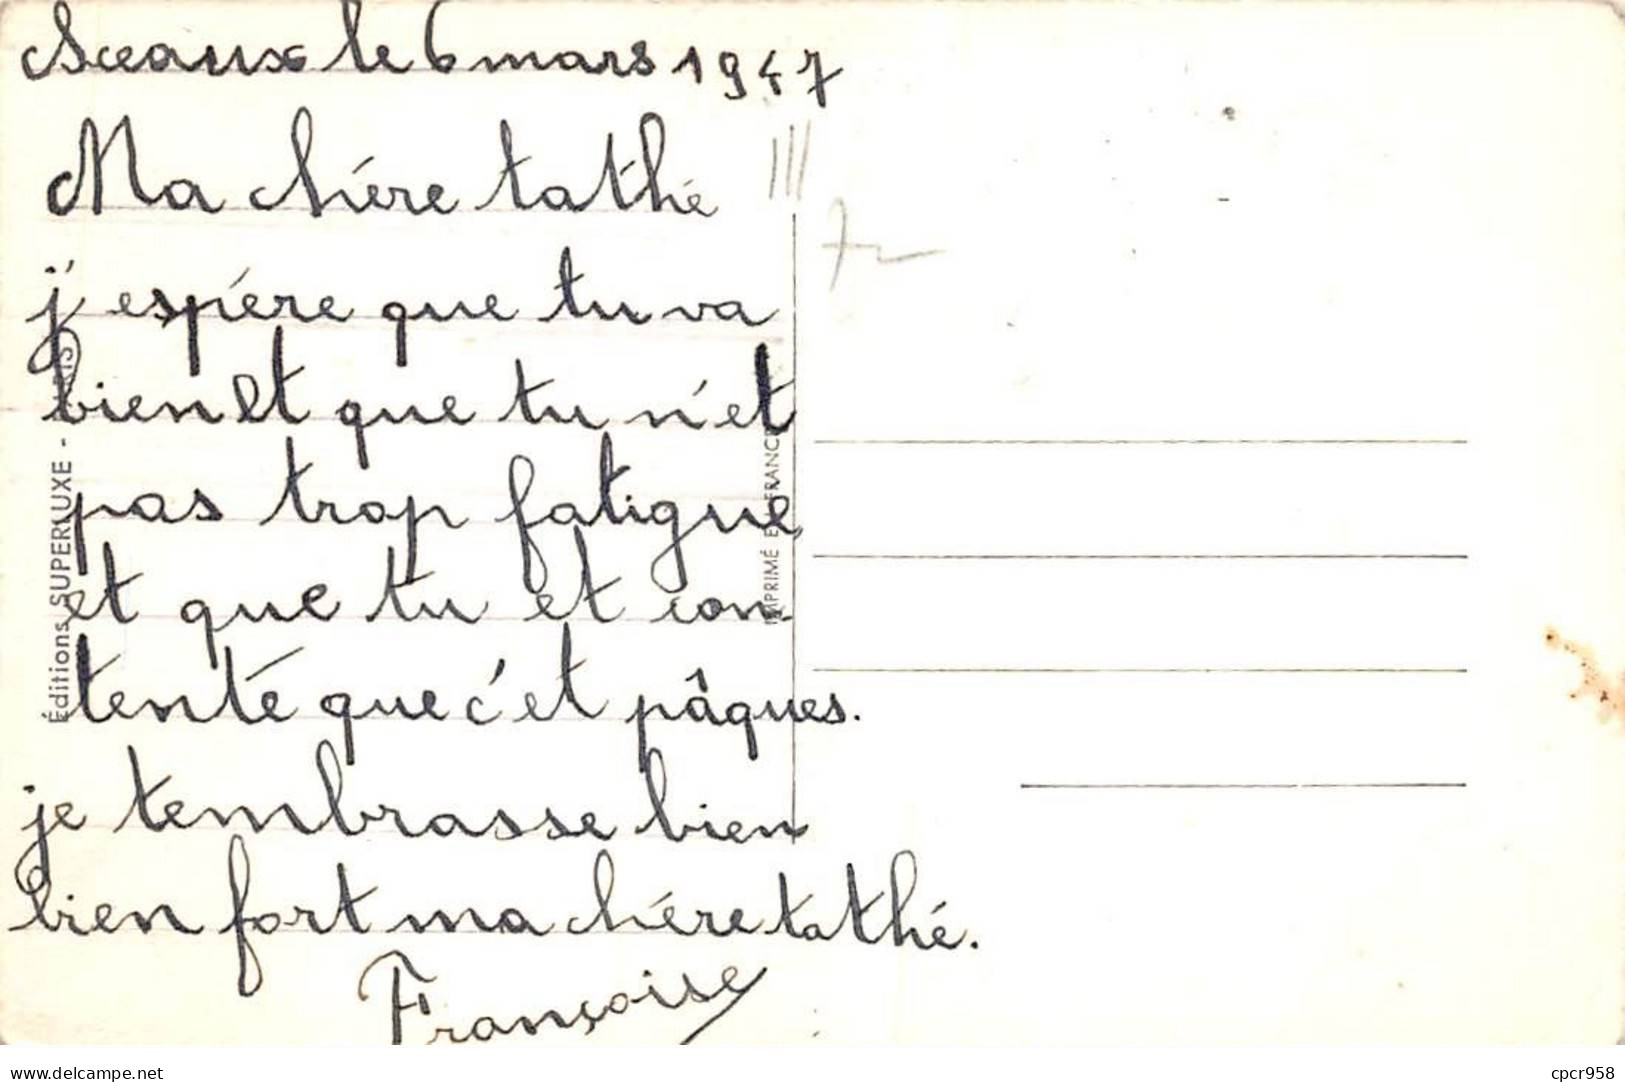 Sceaux le 6 mars 1947
Ma chére tathé
j'espére que tu va
bien et que tu n'et
pas trop fatigue
et que tu et con
tenté que c'et pâques.
je tembrasse bien
bien fort ma chére tathé.
Françoise
Éditions SUPERLUXE - PARIS
IMPRIMÉ EN FRANCE
delcampe.net
cpcr958